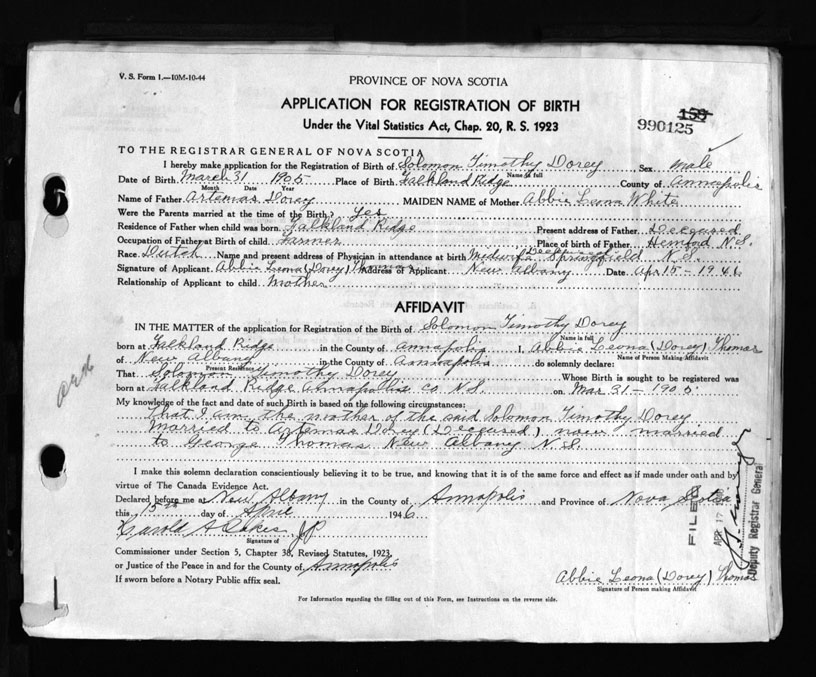 V. S. Form 1.—10M-10-44
PROVINCE OF NOVA SCOTIA
APPLICATION FOR REGISTRATION OF BIRTH
Under the Vital Statistics Act, Chap. 20, R. S. 1923
159
990125
TO THE REGISTRAR GENERAL OF NOVA SCOTIA
I hereby make application for the Registration of Birth of Solomon Timothy Dorey Sex Male
Name in full
Date of Birth March 31 1905 Place of Birth Falkland Ridge County of Annapolis
Month Date Year
Name of Father Artemas Dorey MAIDEN NAME of Mother Abbie Leona White
Were the Parents married at the time of the Birth? Yes
Residence of Father when child was born. Falkland Ridge Present address of Father. Deceased
Occupation of Father at Birth of child. Farmer Place of birth of Father. Hemford N.S.
Race. Dutch Name and present address of Physician in attendance at birth Midwife Springfield N.S.
Signature of Applicant Abbie Leona (Dorey) Thomas Address of Applicant New Albany Date. Apr 15 - 1946
Relationship of Applicant to child Mother
AFFIDAVIT
IN THE MATTER of the application for Registration of the Birth of Solomon Timothy Dorey
Name in full
born at Falkland Ridge in the County of Annapolis I, Abbie Leona (Dorey) Thomas
Name of Person Making Affidavit
of New Albany in the County of Annapolis do solemnly declare:
Present Residence
That Solomon Timothy Dorey Whose Birth is sought to be registered was
born at Falkland Ridge Annapolis Co N.S. on Mar 31 - 1905.
My knowledge of the fact and date of such Birth is based on the following circumstances:
That I am the mother of the said Solomon Timothy Dorey
Married to Artemas Dorey (Deceased) now married
to George Thomas New Albany N.S.
I make this solemn declaration conscientiously believing it to be true, and knowing that it is of the same force and effect as if made under oath and by
virtue of The Canada Evidence Act.
Declared before me at New Albany in the County of Annapolis and Province of Nova Scotia
this 15th day of April 1946
Harold A Oakes JP
Signature of
Commissioner under Section 5, Chapter 38, Revised Statutes, 1923,
or Justice of the Peace in and for the County of Annapolis
If sworn before a Notary Public affix seal.
Abbie Leona (Dorey) Thomas
Signature of Person making Affidavit
For Information regarding the filling out of this Form, see Instructions on the reverse side.
FILED
APR 17 1946
Deputy Registrar General